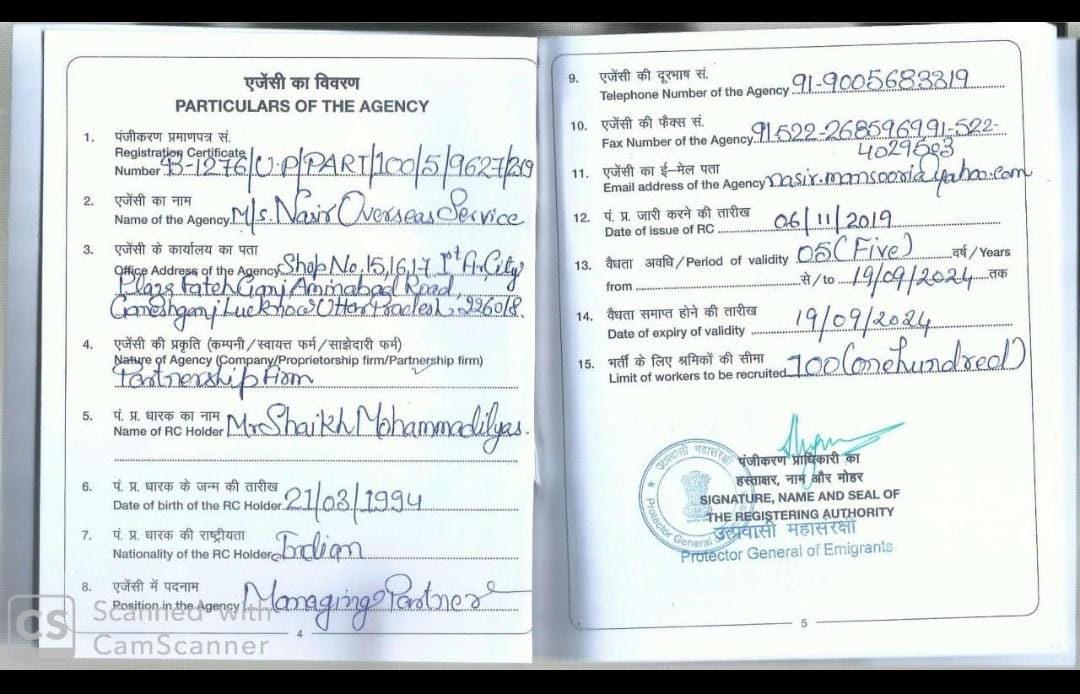 एजेंसी का विवरण
PARTICULARS OF THE AGENCY
1. पंजीकरण प्रमाणपत्र सं.
Registration Certificate
Number B-1276/U.P/PART/100/5/9627/219
2. एजेंसी का नाम
Name of the Agency M/s. Nasir Overseas Service
3. एजेंसी के कार्यालय का पता
Office Address of the Agency Shop No. 15,16,17 Ist Flr, City
Plaza Fateh Ganj Aminabad Road,
Ganeshganj Lucknow Uttar Pradesh, 226018.
4. एजेंसी की प्रकृति (कम्पनी/स्वायत्त फर्म/साझेदारी फर्म)
Nature of Agency (Company/Proprietorship firm/Partnership firm)
Partnership Firm
5. पं. प्र. धारक का नाम
Name of RC Holder Mr Shaikh Mohammad ilyas.
6. पं. प्र. धारक के जन्म की तारीख
Date of birth of the RC Holder 21/03/1994
7. पं. प्र. धारक की राष्ट्रीयता
Nationality of the RC Holder Indian
8. एजेंसी में पदनाम
Position in the Agency Managing Partner
4
CS Scanned with
CamScanner
9. एजेंसी की दूरभाष सं.
Telephone Number of the Agency 91-9005683319
10. एजेंसी की फैक्स सं.
Fax Number of the Agency 91522-2685969 91-522-
4029503
11. एजेंसी का ई–मेल पता
Email address of the Agency nasir.mansooria@yahoo.com
12. पं. प्र. जारी करने की तारीख
Date of issue of RC 06/11/2019
13. वैधता अवधि/Period of validity 05 (Five) वर्ष/Years
from से/to 19/09/2024 तक
14. वैधता समाप्त होने की तारीख
Date of expiry of validity 19/09/2024
15. भर्ती के लिए श्रमिकों की सीमा
Limit of workers to be recruited 100 (one hundred)
उत्प्रवासी महासंरक्षी
Protector General
पंजीकरण प्राधिकारी का
हस्ताक्षर, नाम और मोहर
SIGNATURE, NAME AND SEAL OF
THE REGISTERING AUTHORITY
उत्प्रवासी महासंरक्षी
Protector General of Emigrants
5